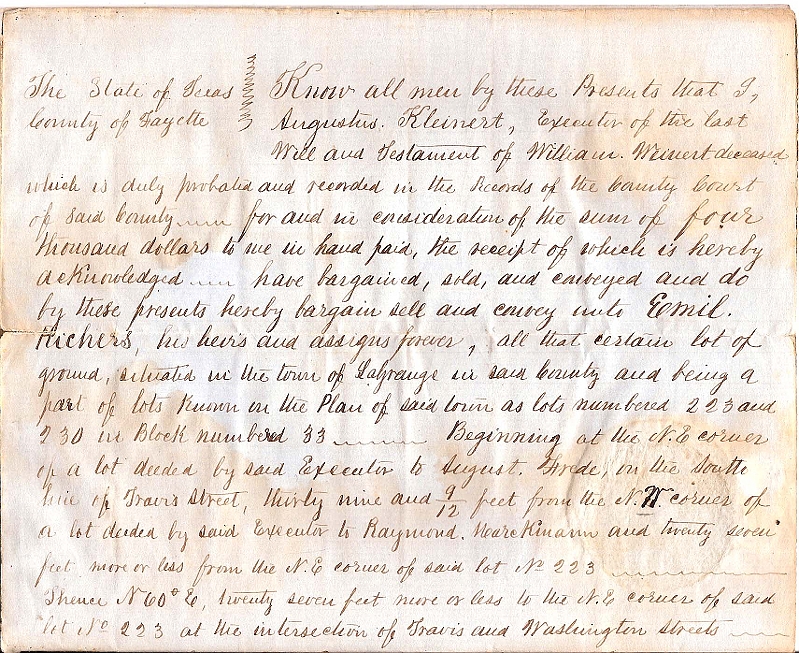 The State of Texas
County of Fayette
Know all men by these Presents that I,
Augustus. Kleinert, Executor of the last
Will and Testament of William. Weinert deceased
which is duly probated and recorded in the Records of the County Court
of said County for and in consideration of the sum of four
thousand dollars to me in hand paid, the receipt of which is hereby
acknowledged have bargained, sold, and conveyed and do
by these presents hereby bargain sell and convey unto Emil.
Richers, his heirs and assigns forever, all that certain lot of
ground, situated in the town of LaGrange in said County and being a
part of lots known on the Plan of said town as lots numbered 223 and
230 in Block numbered 33 Beginning at the N.E corner
of a lot deeded by said Executor to August. Frede, on the South
line of Travis Street, thirty nine and 9/12 feet from the N.W. corner of
a lot deeded by said Executor to Raymond. and twenty seven
feet more or less from the N.E corner of said lot No 223
Thence N 60° E, twenty seven feet more or less to the N.E corner of said
lot No 223 at the intersection of Travis and Washington streets